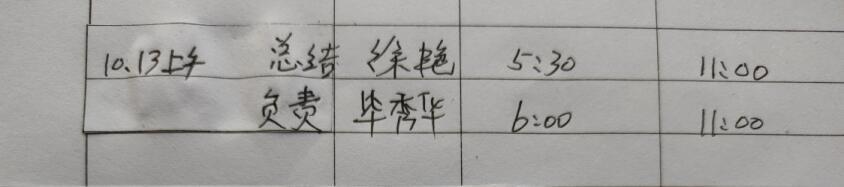 10.13上午 总结 徐艳 5:30 11:00
负责 毕秀华 6:00 11:00